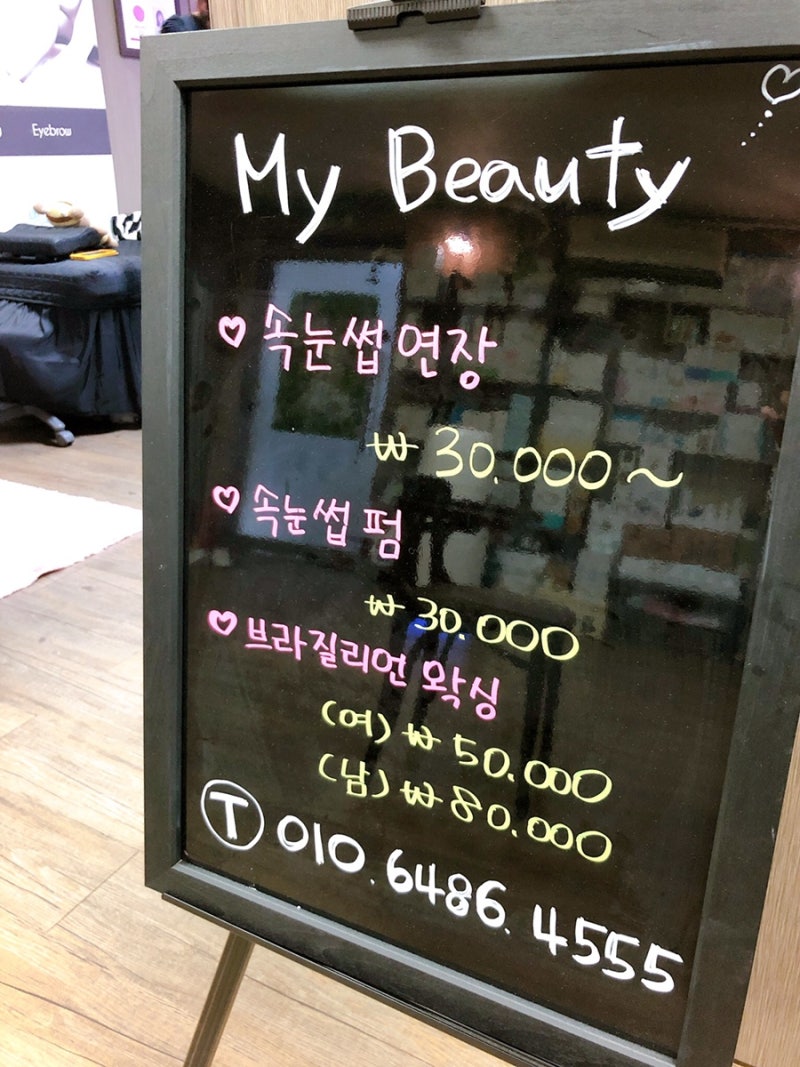 Eyebrow
My Beauty
♡ 속눈썹 연장
₩ 30.000 ~
♡ 속눈썹 펌
₩ 30.000
♡ 브라질리언 왁싱
(여) ₩ 50.000
(남) ₩ 80.000
Ⓣ 010.6486.4555